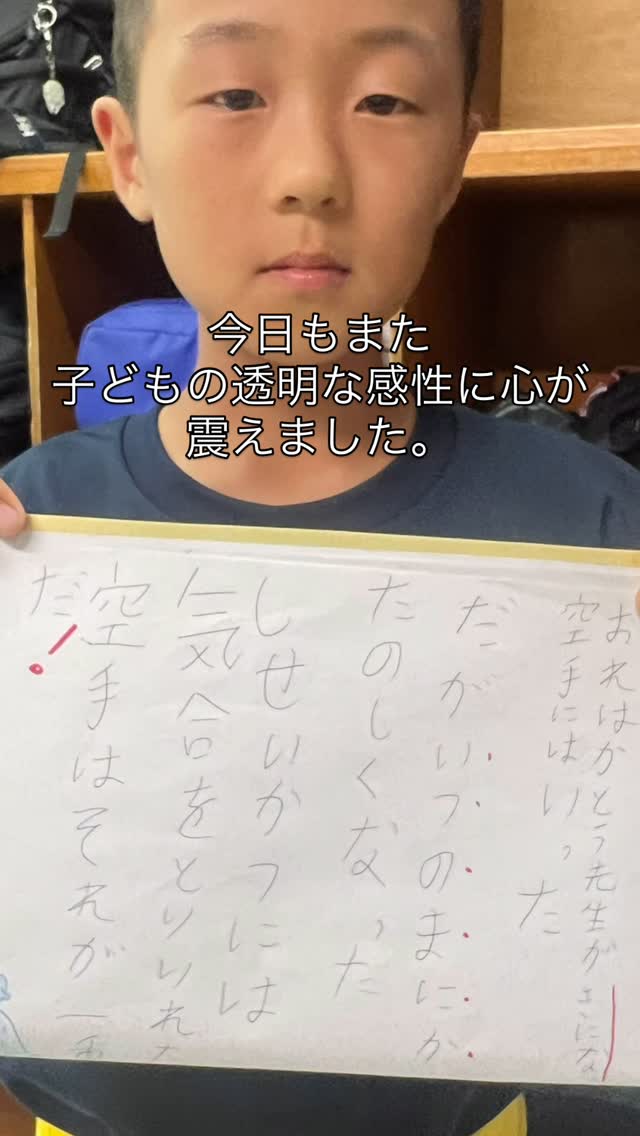 今日もまた
子どもの透明な感性に心が
震えました。
おれはかとう先生が
空手にはいった
だがいつのまにか
たのしくなった
しせいかつには
気合をとりいれ
空手はそれが一
だ!